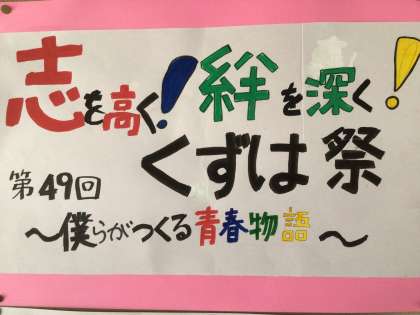 志を高く!絆を深く!
くずは祭
第49回
～僕らがつくる青春物語～